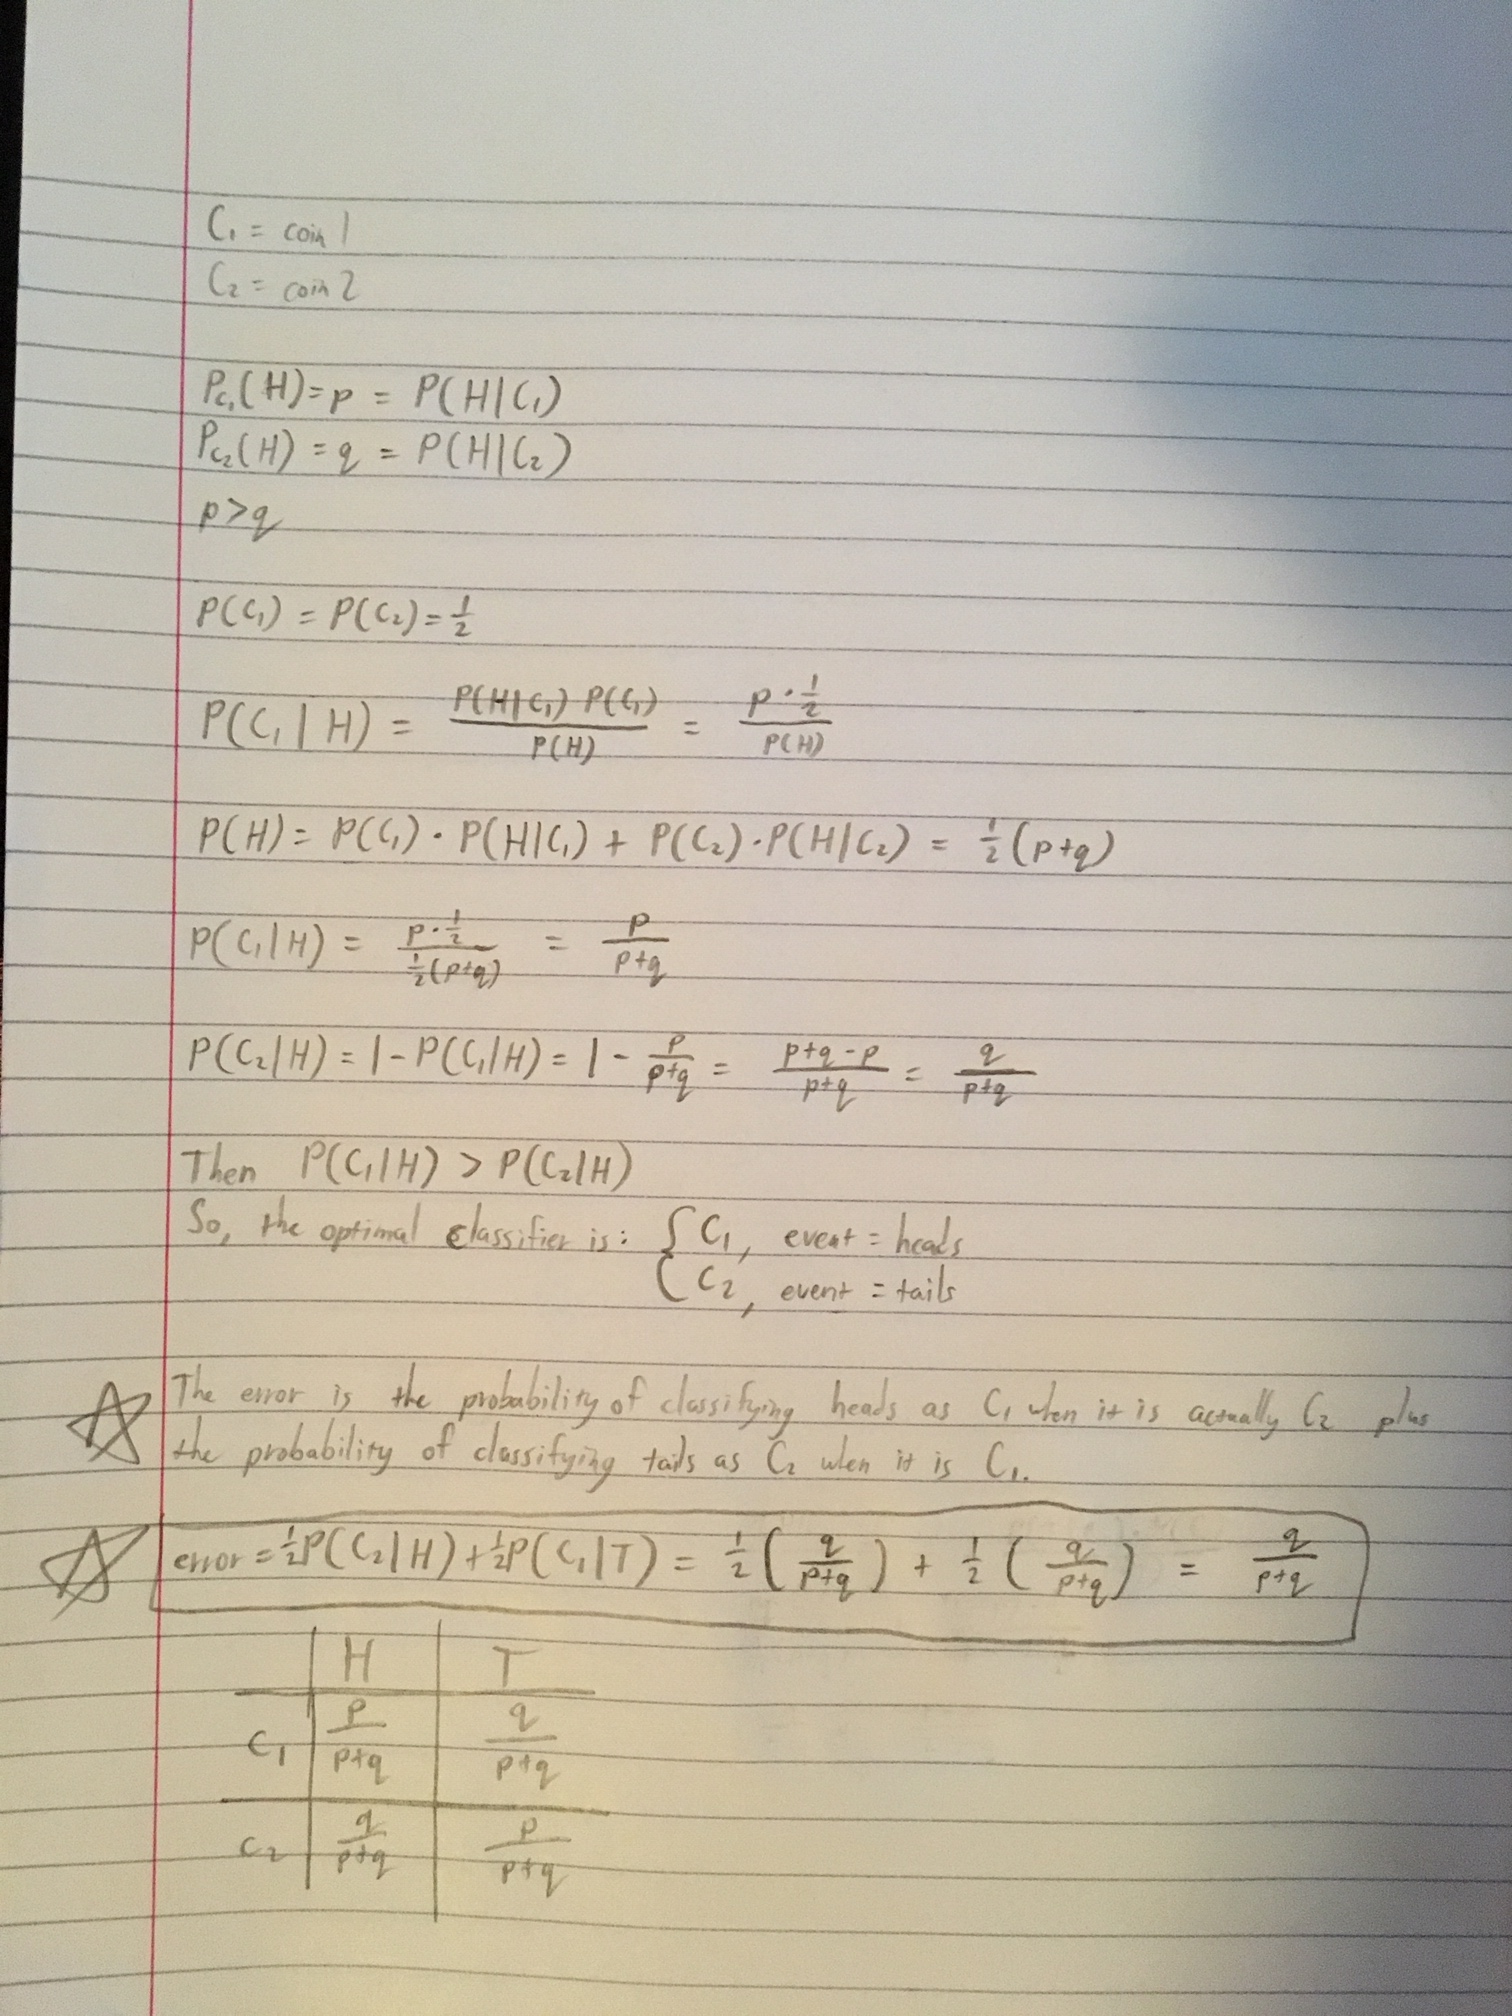 C₁ = coin 1
C₂ = coin 2
P_C₁(H) = p = P(H|C₁)
P_C₂(H) = q = P(H|C₂)
p > q
P(C₁) = P(C₂) = 1/2
P(C₁|H) = P(H|C₁) P(C₁) / P(H) = p · 1/2 / P(H)
P(H) = P(C₁) · P(H|C₁) + P(C₂) · P(H|C₂) = 1/2 (p+q)
P(C₁|H) = p · 1/2 / 1/2(p+q) = p / p+q
P(C₂|H) = 1 - P(C₁|H) = 1 - p / p+q = p+q-p / p+q = q / p+q
Then P(C₁|H) > P(C₂|H)
So, the optimal classifier is: { C₁, event = heads
C₂, event = tails
The error is the probability of classifying heads as C₁ when it is actually C₂ plus
the probability of classifying tails as C₂ when it is C₁.
error = 1/2 P(C₂|H) + 1/2 P(C₁|T) = 1/2 ( q / p+q ) + 1/2 ( q / p+q ) = q / p+q
H T
C₁ p / p+q q / p+q
C₂ q / p+q p / p+q